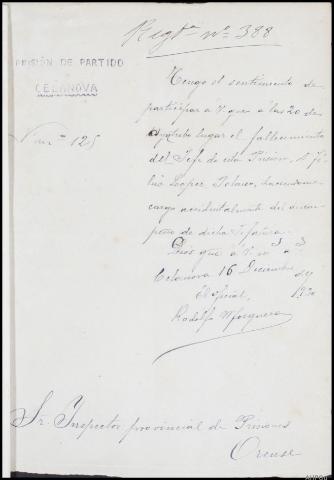 Regtº nº 388
PRISIÓN DE PARTIDO
CELANOVA
Núm. 125
Tengo el sentimiento de
participar a V. que a las 20 de
hoy tuvo lugar el fallecimiento
del Jefe de esta Prisión, D. Ju-
lio Lopez haciendome
cargo accidentalmente del desem-
peño de dicha Jefatura.
Dios gue á V. m a
Celanova 16 Diciembre de
1930
El oficial,
Rodolfo
Sr. Inspector provincial de Prisiones
Orense